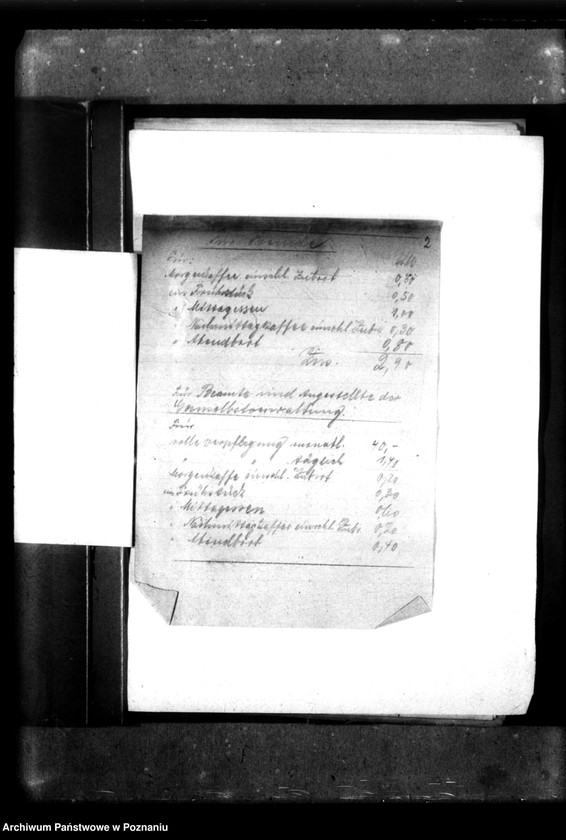 2
Für Fremde
Für:
Morgenkaffee einschl. Zubrot 0,30
ein Frühstück 0,50
" Mittagessen 1,00
" Nachmittagkaffee einschl. Zubr. 0,30
" Abendbrot 0,80
Zus. 2,90
Für Beamte und Angestellte der
Für
volle Verpflegung monatl. 40,-
" " täglich 1,40
Morgenkaffe einschl. Zubrot 0,20
ein Frühstück 0,30
" Mittagessen 0,60
" Nachmittagkaffee einschl. Zubr. 0,20
" Abendbrot 0,40
Archiwum Państwowe w Poznaniu